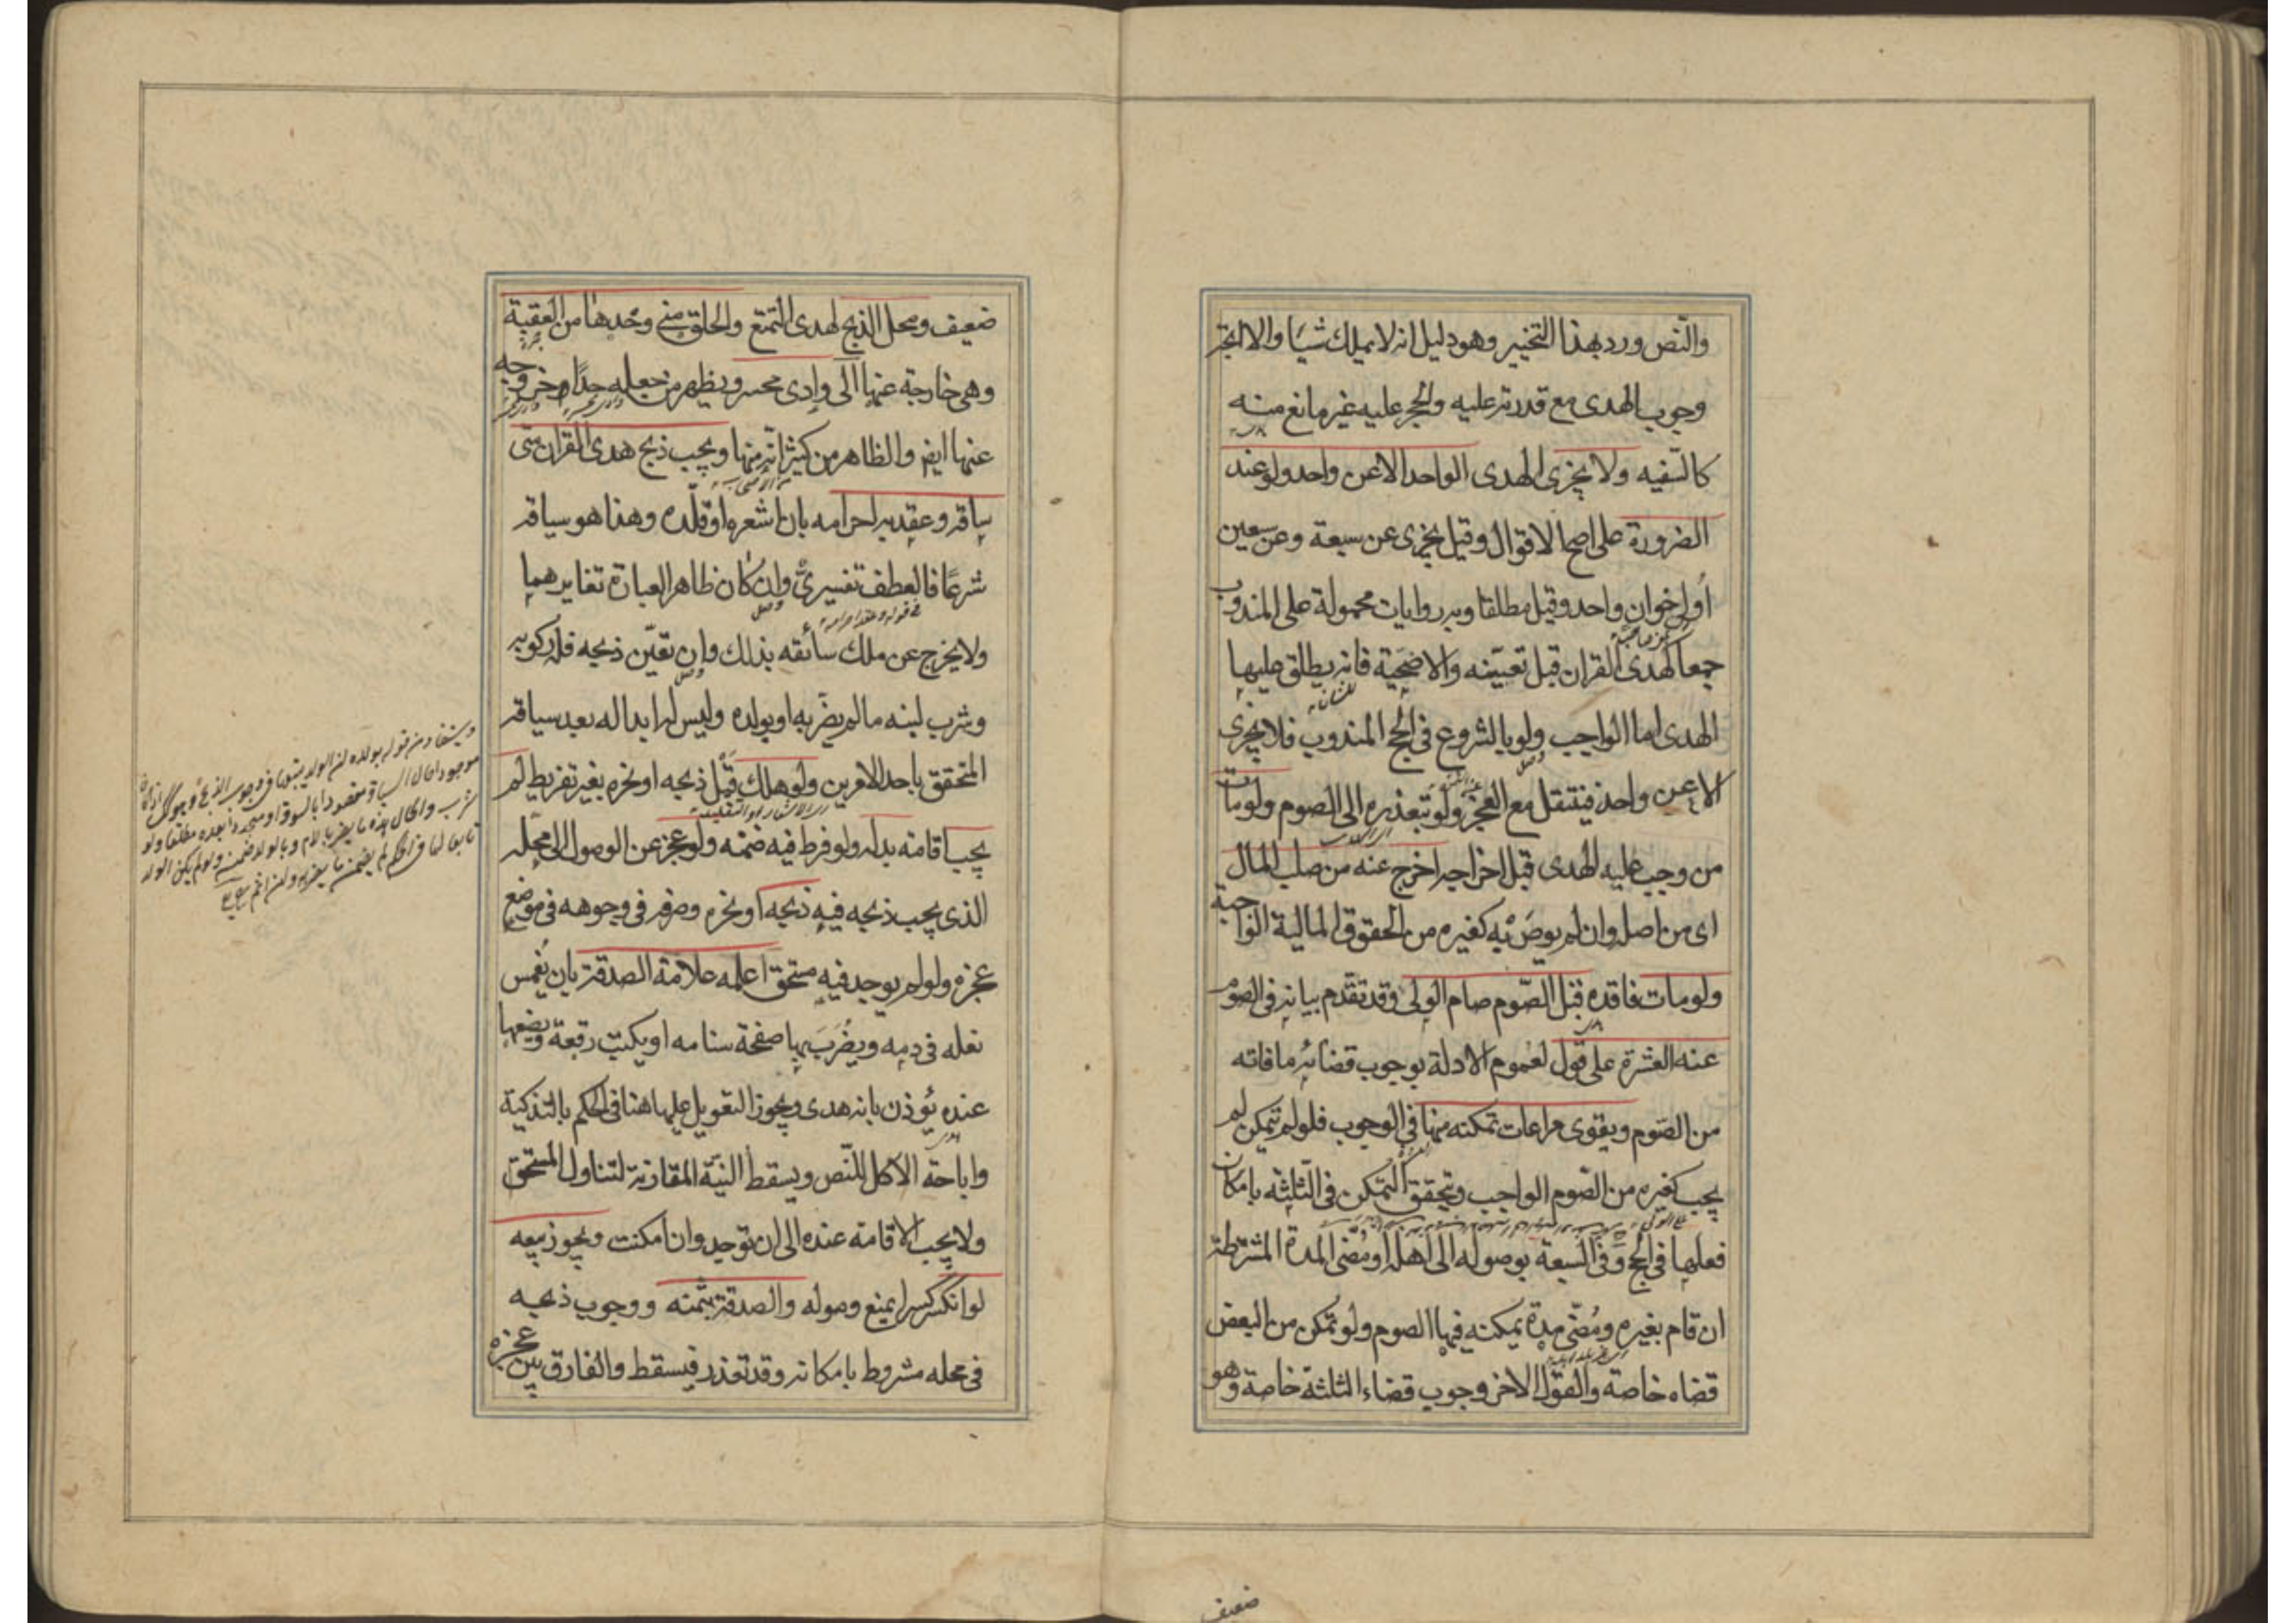 والنّص ورد بهذا التخيير وهو دليل انه لا يملك شيئا والا اتجه
وجوب الهدى مع قدرته عليه والحجر عليه غير مانع منه
كالسّفيه ولا يجزى الهدى الواحد الا عن واحد ولو عند
الضرورة على اصح الاقوال وقيل يجزى عن سبعة وعن سبعين
اولى خوان واحد وقيل مطلقا وبه روايات محمولة على المندوب
جمعا كهدى القران قبل تعيّنه والاضحية فانه يطلق عليها
الهدى اما الواجب ولو بالشروع فى الحج المندوب فلا يجزى
الا عن واحد فينتقل مع العجز ولو بتعذره الى الصوم ولو مات
من وجب عليه الهدى قبل اخراجه اخرج عنه من صلب المال
اى من اصله وان لم يوص به كغيره من الحقوق المالية الواجبة
ولو مات فاقده قبل الصّوم صام الولى وقد تقدم بيانه فى الصوم
عنه العشرة على قول لعموم الادلة بوجوب قضائه ما فاته
من الصّوم ويقوى مراعات تمكنه منها فى الوجوب فلو لم يتمكن لم
يجب كغيره من الصّوم الواجب ويتحقق التمكن فى الثلثه بامكان
فعلها فى الحج وفى السبعة بوصوله الى اهله او مُضىّ المدة المشترطة
ان قام بغيره ومُضىّ مدة يمكنه فيها الصوم ولو تمكن من البعض
قضاه خاصة والقول الاخر وجوب قضاء الثلثة خاصة وهو
ضعيف
ضعيف ومحل الذبح لهدى التمتع والحلق منى وحدها من العقبة
وهى خارجة عنها الى وادى محسر ويظهر من جعله حدّا خروجه
عنها ايض والظاهر من كثير انّه منها ويجب ذبح هدى القران متى
ساقه وعقد به احرامه بان اشعره او قلّده وهذا هو سياقه
شرعًا فالعطف تفسيرىّ وان كان ظاهر العبارة تغايرهما
ولا يخرج عن ملك سائقه بذلك وان تعيّن ذبحه فله ركوبه
وشرب لبنه ما لم يضرّ به او بولده وليس له ابداله بعد سياقه
المتحقق باحد الامرين ولو هلك قبل ذبحه او نحره بغير تفريط لم
يجب اقامة بدله ولو فرط فيه ضمنه ولو عجز عن الوصول الى محلّه
الذى يجب ذبحه فيه ذبحه او نحره وصرفه فى وجوهه فى موضع
عجزه ولو لم يوجد فيه مستحق اعلمه علامة الصدقة بان يغمس
نعله فى دمه ويضرب بها صفحة سنامه او يكتب رقعة ويضعها
عنده يؤذن بانه هدى ويجوز التعويل عليها هنا فى الحكم بالتذكية
واباحة الاكل للنّص ويسقط النيّة المقارنة لتناول المستحق
ولا يجب الاقامة عنده الى ان توجد وان امكنت ويجوز بيعه
لو انكسر كسرا يمنع وصوله والصدقة بثمنه ووجوب ذبحه
فى محله مشروط بامكانه وقد تعذر فيسقط والفارق بين عجزه
ويستفاد من قوله بولده ان الولد يتبعها فى وجوب الذبح